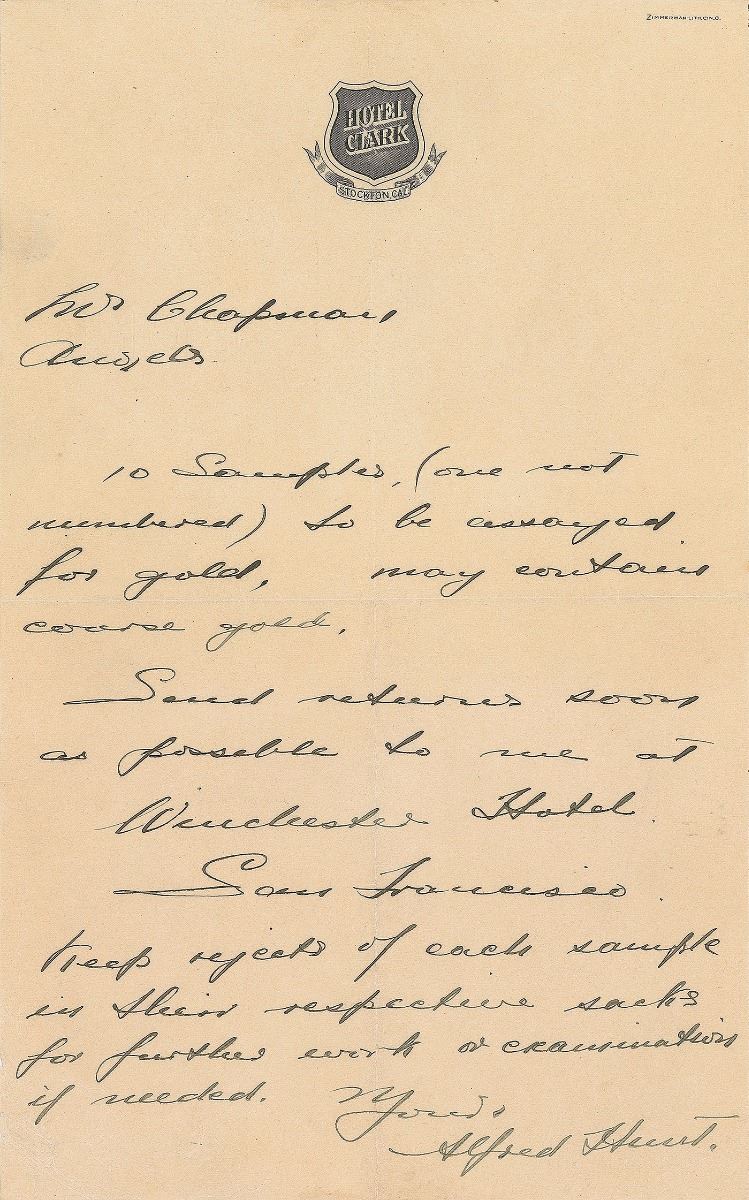 ZIMMERMAN LITH. CIN. O.
HOTEL
CLARK
STOCKTON, CAL.
Mr Chapman
Angels.
10 Samples, (one not
numbered) to be assayed
for gold, may contain
coarse gold.
Send returns soon
as possible to me at
Winchester Hotel.
San Francisco.
Keep rejects of each sample
in their respective sacks
for further work or examination
if needed. Yours,
Alfred Hunt.